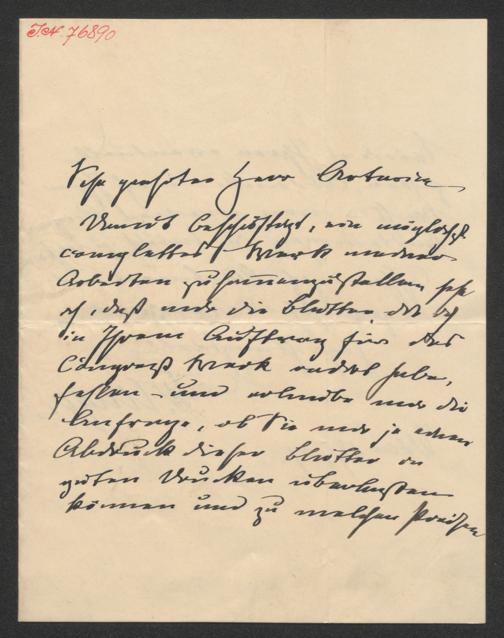 I.N. 76890
Sehr geehrter Herr Artaria
Damit beschäftigt, ein möglichst
complettes Werk meiner
Arbeiten zusammenzustellen seh
ich, daß mir die Blätter, die ich
in Ihrem Auftrag für das
Congress Werk radirt habe,
fehlen – und erlaube mir die
Anfrage, ob Sie mir je einen
Abdruck dieser Blätter in
guten Drucken überlassen
können und zu welchen Preisen